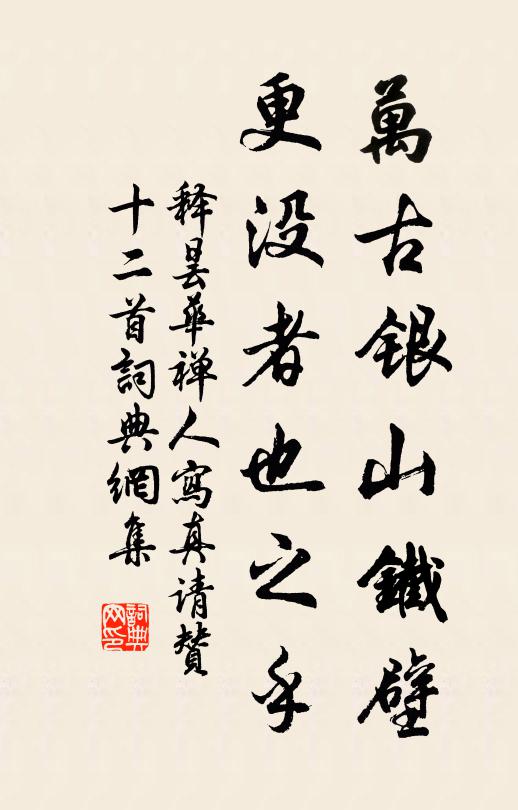 萬古銀山鐵壁
更没者也之乎
释曇華禪人寫真请贊
十二首詞典網集
詞典网印